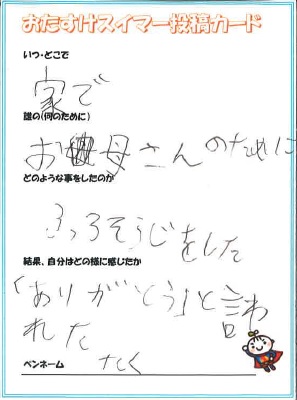 おたすけスイマー投稿カード
いつ・どこで
家で
誰の(何のために)
お母さんのために
どのような事をしたのか
ふろそうじをした
結果、自分はどの様に感じたか
「ありがとう」と言わ
れた
ペンネーム たく